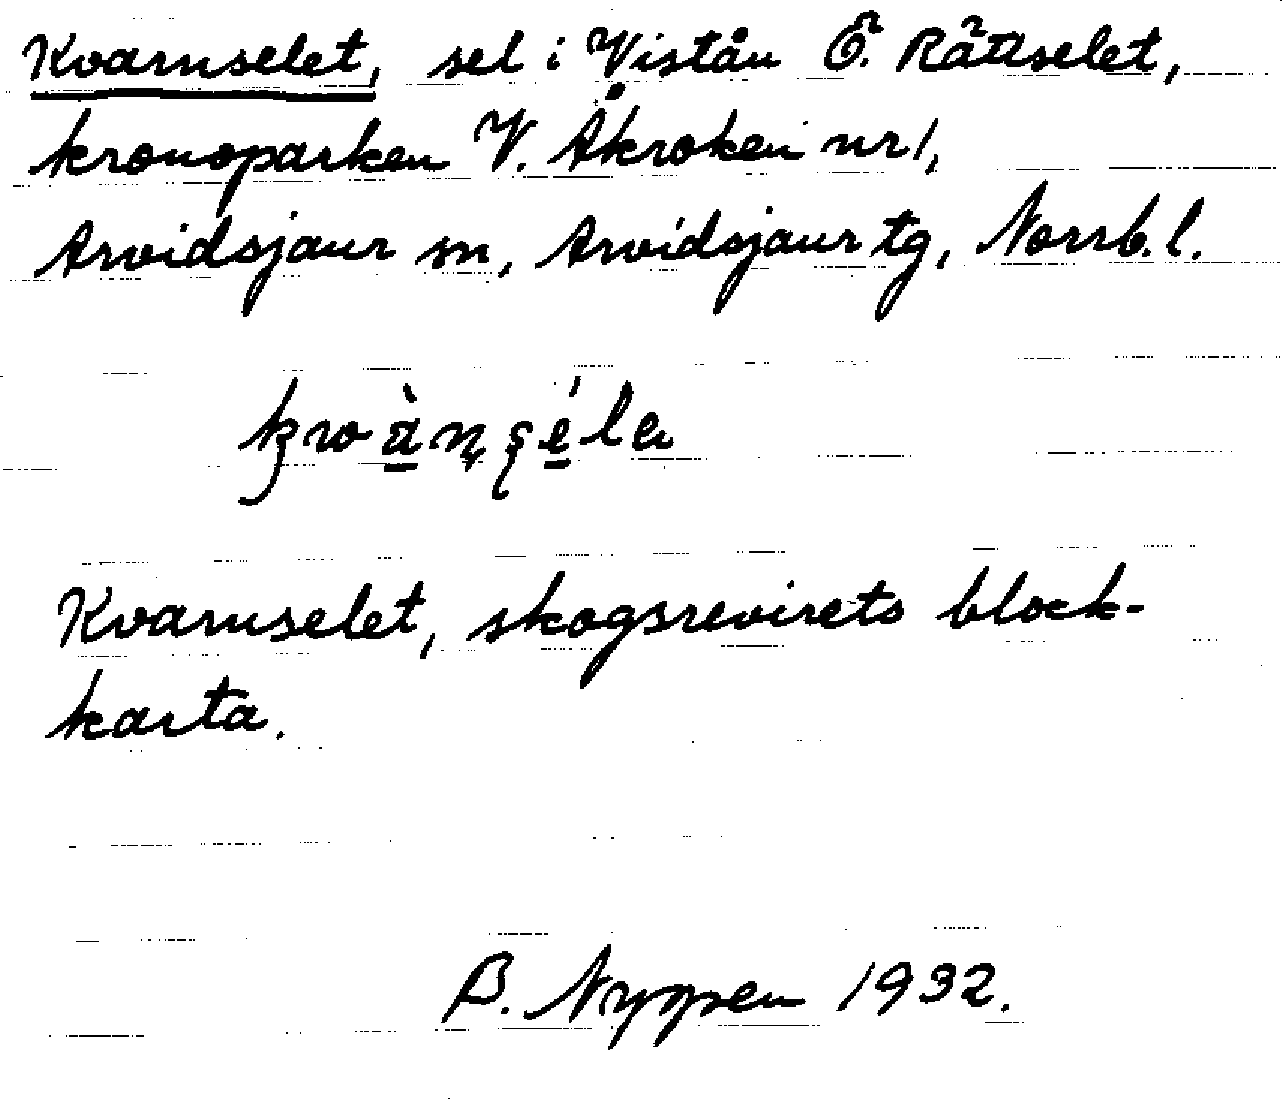 Kvarnselet, sel i Viståu Ö. Råttselet,
kronoparken V. Åkroken nr 1,
Arvidsjaur sn, Arvidsjaur tg, Norrb. l.
Kvarnselet, skogsrevirets block-
karta.
1932.